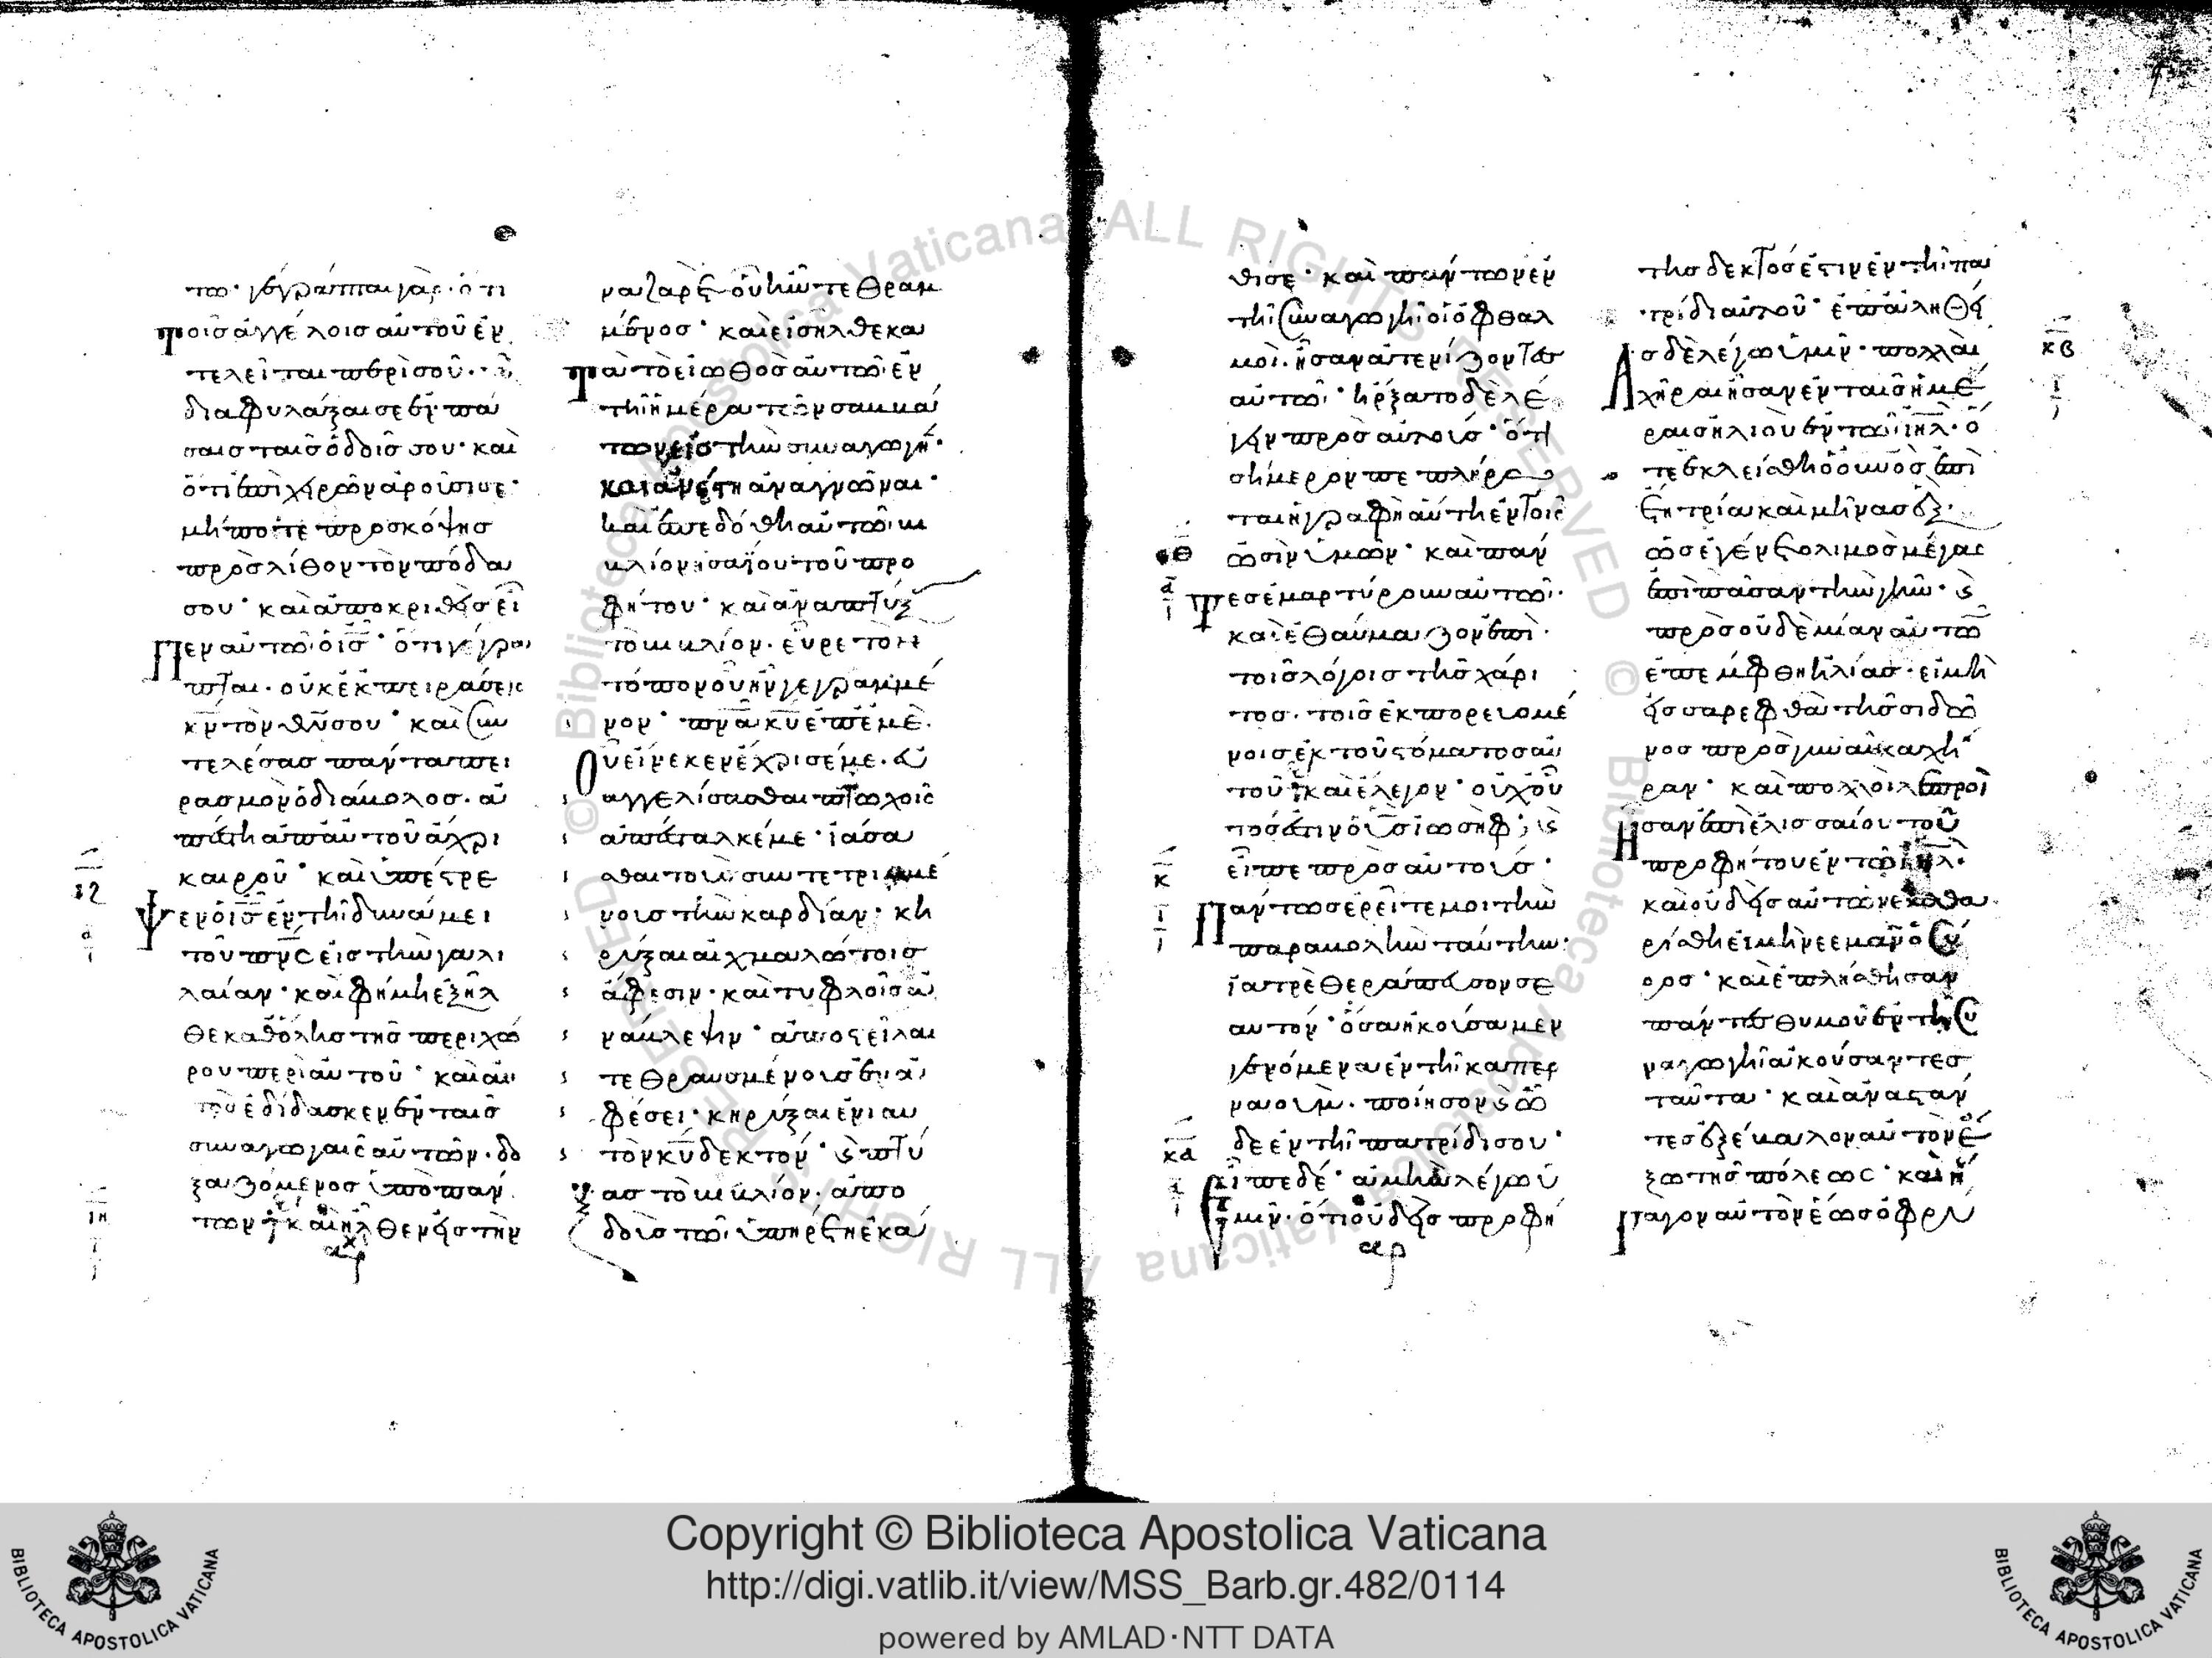 τω· γέγραπται γὰρ· ὅτι
τοῖσ ἀγγέλοισ αὐτοῦ ἐν
τελεῖται περὶ σοῦ·
διαφυλάξαι σε ἐν πά
σαισ ταῖσ ὁδοῖσ σου· καὶ
ὅτι ἐπὶ χειρῶν ἀροῦσι σε·
μήποτε προσκόψησ
πρὸσ λίθον τὸν πόδα
σου· καὶ ἀποκριθεὶσ εἶ
πεν αὐτῶ ὁ ισ· ὅτι γέγρα
πται· οὐκ ἐκπειράσεισ
κν τὸν θν σου· καὶ συν
τελέσασ πάντα πει
ρασμὸν ὁ διάβολοσ· ἀ
πέστη ἀπ αὐτοῦ ἄχρι
καιροῦ· καὶ ὑπέστρε
ψεν ὁ ισ ἐν τῆ δυνάμει
τοῦ πνσ εἰσ τὴν γαλι
λαίαν· καὶ φήμη ἐξῆλ
θε καθ ὅλησ τῆσ περιχώ
ρου περὶ αὐτοῦ· καὶ αὐ
τὸσ ἐδίδασκεν ἐν ταῖσ
συναγωγαῖσ αὐτῶν· δο
ξαζόμενοσ ὑπὸ πάν
των· καὶ ἦλθεν εἰσ τὴν
ναζαρὲτ οὗ ἦν τεθραμ
μένοσ· καὶ εἰσῆλθε κα
τὰ τὸ εἰωθὸσ αὐτῶ· ἐν
τῆ ἡμέρα τῶν σαββά
των εἰσ τὴν συναγωγήν·
καὶ ἀνέστη ἀναγνῶναι·
καὶ ἐπεδόθη αὐτῶ βι
βλίον ἡσαΐου τοῦ προ
φήτου· καὶ ἀναπτύξασ
τὸ βιβλίον· εὗρε τὸν
τόπον οὗ ἦν γεγραμμέ
νον· πνα κυ ἐπ ἐμὲ·
οὗ εἵνεκεν ἔχρισέ με· εὐ
αγγελίσασθαι πτωχοῖσ
ἀπέσταλκέ με· ἰάσα
σθαι τοὺσ συντετριμμέ
νουσ τὴν καρδίαν· κη
ρύξαι αἰχμαλώτοισ
ἄφεσιν· καὶ τυφλοῖσ ἀ
νάβλεψιν· ἀποστεῖλαι
τεθραυσμένουσ ἐν ἀ
φέσει· κηρύξαι ἐνιαυ
τὸν κυ δεκτόν· καὶ πτύ
ξασ τὸ βιβλίον· ἀπο
δοὺσ τῶ ὑπηρέτη ἐκά
θισε· καὶ πάντων ἐν
τῆ συναγωγῆ οἱ ὀφθαλ
μοὶ· ἦσαν ἀτενίζοντεσ
αὐτῶ· ἤρξατο δὲ λέ
γειν πρὸσ αὐτούσ· ὅτι
σήμερον πεπλήρω
ται ἡ γραφὴ αὕτη ἐν τοῖσ
ὠσὶν ὑμῶν· καὶ πάν
τεσ ἐμαρτύρουν αὐτῶ·
καὶ ἐθαύμαζον ἐπὶ
τοῖσ λόγοισ τῆσ χάρι
τοσ· τοῖσ ἐκπορευομέ
νοισ ἐκ τοῦ στόματοσ αὐ
τοῦ· καὶ ἔλεγον· οὐχ οὗ
τόσ ἐστιν ὁ υσ ἰωσήφ; καὶ
εἶπε πρὸσ αὐτούσ·
πάντωσ ἐρεῖτέ μοι τὴν
παραβολὴν ταύτην·
ἰατρὲ θεράπευσον σε
αυτόν· ὅσα ἠκούσαμεν
γενόμενα ἐν τῆ καπερ
ναούμ· ποίησον καὶ ὧ
δε ἐν τῆ πατρίδι σου·
εἶπε δέ· ἀμὴν λέγω ὑ
μῖν· ὅτι οὐδεὶσ προφή
τησ δεκτόσ ἐστιν ἐν τῆ πα
τρίδι αὐτοῦ· ἐπ ἀληθεί
ασ δὲ λέγω ὑμῖν· πολλαὶ
χῆραι ἦσαν ἐν ταῖσ ἡμέ
ραισ ἡλιοὺ ἐν τῶ ιηλ· ὅ
τε ἐκλείσθη ὁ οὐνοσ ἐπὶ
ἔτη τρία καὶ μῆνασ ἕξ·
ὡσ ἐγένετο λιμὸσ μέγασ
ἐπὶ πᾶσαν τὴν γῆν· καὶ
πρὸσ οὐδεμίαν αὐτῶν
ἐπέμφθη ἠλίασ· εἰ μὴ
εἰσ σάρεφθα τῆσ σιδῶ
νοσ πρὸσ γυναῖκα χή
ραν· καὶ πολλοὶ λεπροὶ
ἦσαν ἐπὶ ἐλισσαίου τοῦ
προφήτου ἐν τῶ ιηλ·
καὶ οὐδεὶσ αὐτῶν ἐκαθα
ρίσθη εἰ μὴ νεεμὰν ὁ σύ
ροσ· καὶ ἐπλήσθησαν
πάντεσ θυμοῦ ἐν τῆ συ
ναγωγῆ ἀκούσαντεσ
ταῦτα· καὶ ἀναστάν
τεσ ἐξέβαλον αὐτὸν ἔ
ξω τῆσ πόλεωσ· καὶ ἤ
γαγον αὐτὸν ἕωσ ὀφρύ
Copyright © Biblioteca Apostolica Vaticana
http://digi.vatlib.it/view/MSS_Barb.gr.482/0114
powered by AMLAD·NTT DATA